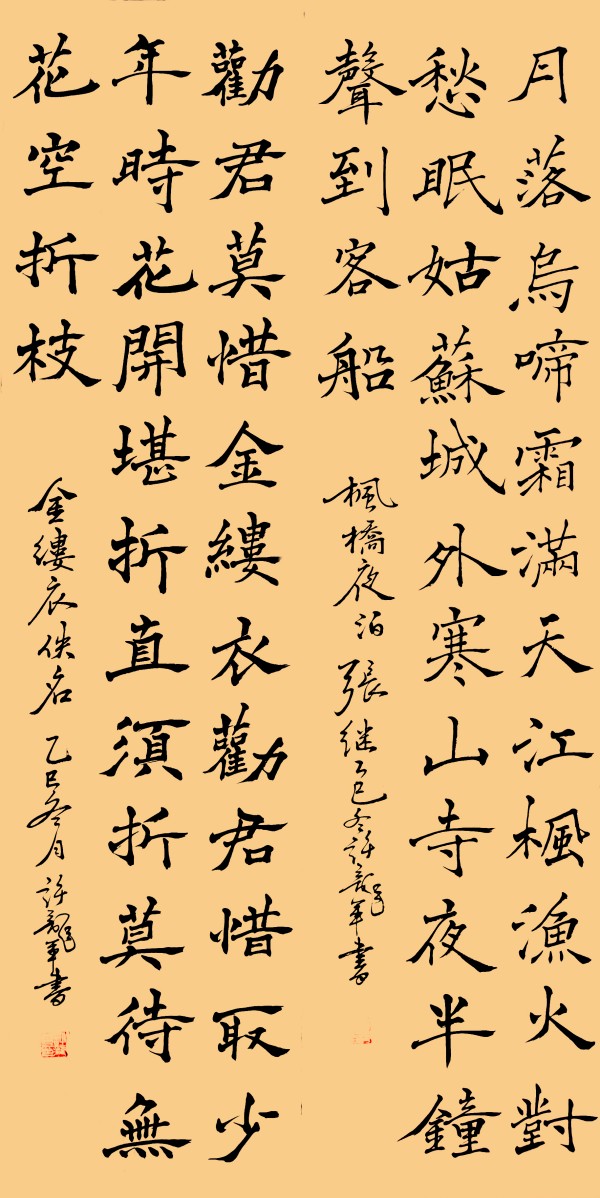 月落烏啼霜滿天江楓漁火對
愁眠姑蘇城外寒山寺夜半鐘
聲到客船
楓橋夜泊 張继乙巳冬許龍军書
勸君莫惜金縷衣勸君惜取少
年時花開堪折直須折莫待無
花空折枝
金縷衣佚名 乙巳冬月許龍军書